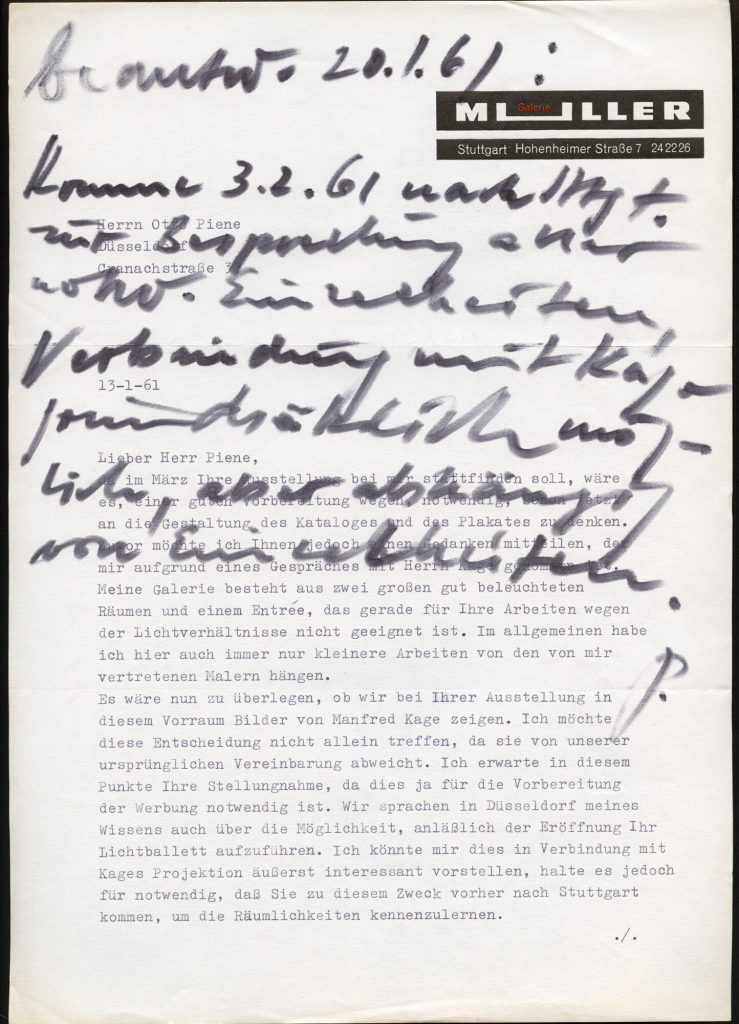 beantw. 20.1.61:
Galerie
MÜLLER
Stuttgart Hohenheimer Straße 7 242226
Komme 3.2.61 nach Stgt.
zur Besprechung aller
notw. Einzelheiten,
Verbindung mit Kage
grundsätzlich mög-
lich, aber abhängig
von Einzelheiten.
P.
Herrn Otto Piene
Düsseldorf
Cranachstraße 3
13-1-61
Lieber Herr Piene,
da im März Ihre Ausstellung bei mir stattfinden soll, wäre
es, einer guten Vorbereitung wegen, notwendig, schon jetzt
an die Gestaltung des Kataloges und des Plakates zu denken.
Zuvor möchte ich Ihnen jedoch einen Gedanken mitteilen, der
mir aufgrund eines Gespräches mit Herrn Kage gekommen ist.
Meine Galerie besteht aus zwei großen gut beleuchteten
Räumen und einem Entrée, das gerade für Ihre Arbeiten wegen
der Lichtverhältnisse nicht geeignet ist. Im allgemeinen habe
ich hier auch immer nur kleinere Arbeiten von den von mir
vertretenen Malern hängen.
Es wäre nun zu überlegen, ob wir bei Ihrer Ausstellung in
diesem Vorraum Bilder von Manfred Kage zeigen. Ich möchte
diese Entscheidung nicht allein treffen, da sie von unserer
ursprünglichen Vereinbarung abweicht. Ich erwarte in diesem
Punkte Ihre Stellungnahme, da dies ja für die Vorbereitung
der Werbung notwendig ist. Wir sprachen in Düsseldorf meines
Wissens auch über die Möglichkeit, anläßlich der Eröffnung Ihr
Lichtballett aufzuführen. Ich könnte mir dies in Verbindung mit
Kages Projektion äußerst interessant vorstellen, halte es jedoch
für notwendig, daß Sie zu diesem Zweck vorher nach Stuttgart
kommen, um die Räumlichkeiten kennenzulernen.
./.